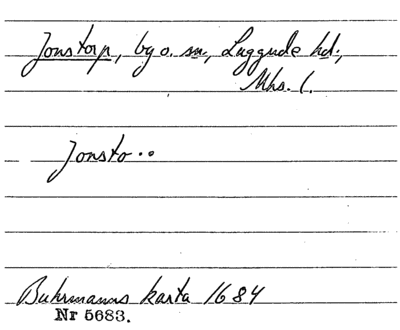 Jonstorp, by o. sn, Luggude hd.,
Mhs. l.
Jonsto..
Buhrmanns karta 1684
Nr 5683.